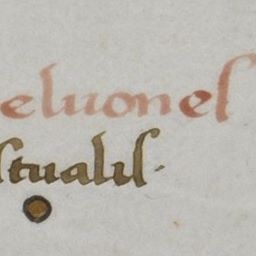 eluoneſ
ſtualiſ.